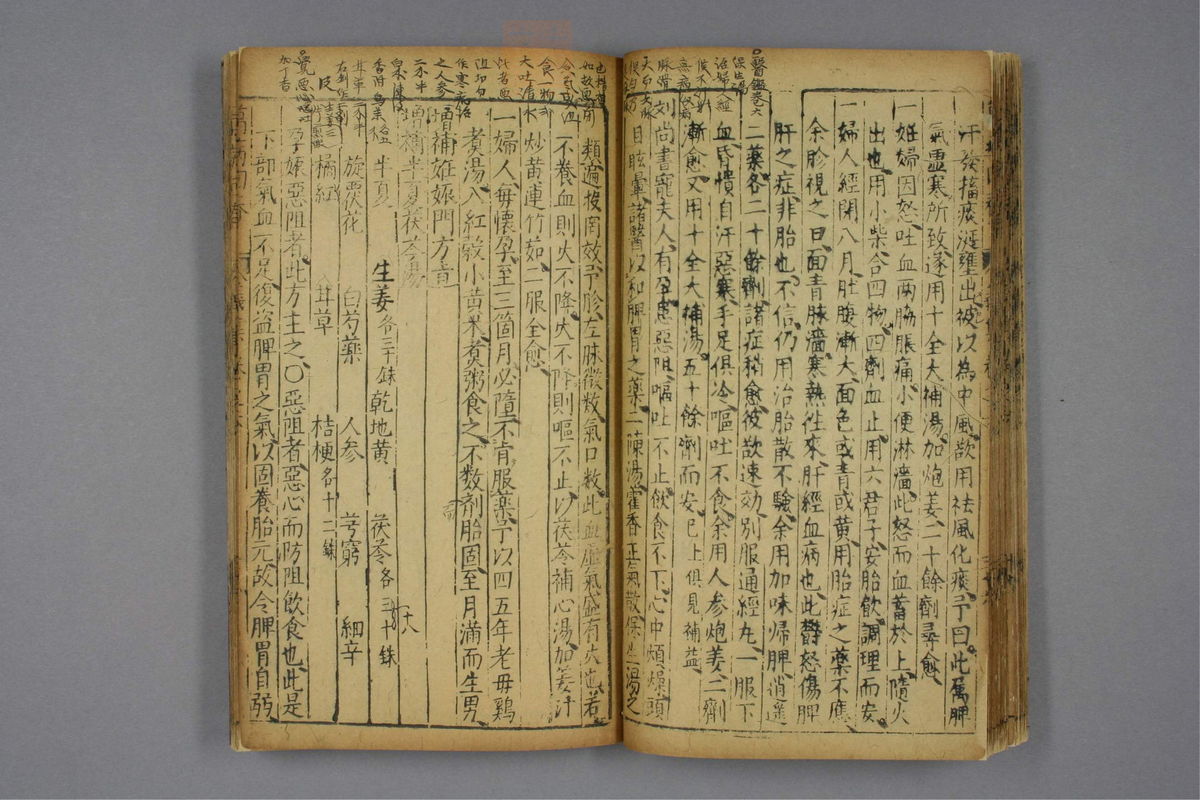 汗發搐痰涎壅出彼以為中風欲用祛風化痰予曰此属脾
氣虛寒所致遂用十全大補湯加炮姜二十餘劑尋愈
一姙婦因怒吐血兩脇脹痛小便淋瀒此怒而血蓄於上隨火
出也用小柴合四物四劑血止用六君子安胎飲調理而安
一婦人經閉八月肚腹漸大面色或青或黄用胎症之藥不應
余胗視之曰面青脉瀒寒熱徃來肝經血病也此欝怒傷脾
肝之症非胎也不信仍用治胎散不驗余用加味歸脾逍遥
二藥各二十餘劑諸症稍愈彼欲速効別服通經丸一服下
血昏憒自汗惡寒手足俱冷嘔吐不食余用人参炮姜二劑
漸愈又用十全大補湯五十餘劑而安已上俱見補益
尚書寵夫人有孕患惡阻嘔吐不止飲食不下心中煩燥頭
目眩暈諸醫以和脾胃之藥二陳湯藿香正氣散保生湯之
類遍投罔效予胗左脉微数氣口数此血虛氣盛有火也若
不養血則火不降火不降則嘔不止以茯苓補心湯加姜汁
炒黄連竹茹二服全愈
一婦人毎懷孕至三箇月必墮不肯服藥予以四五年老毋鷄
煮湯入紅穀小黄米煮粥食之不数剤胎固至月滿而生男
增補姙娠門方意
增補半夏茯苓湯
半夏 生姜各三十銖 乾地黄 茯苓各三十八銖
旋覆花 白芍藥 人参 芎藭 細辛
橘紅 甘草 桔梗各十二銖
孕子娠惡阻者此方主之〇惡阻者惡心而防阻飲食也此是
下部氣血不足復盜脾胃之氣以固養胎元故令脾胃自弱